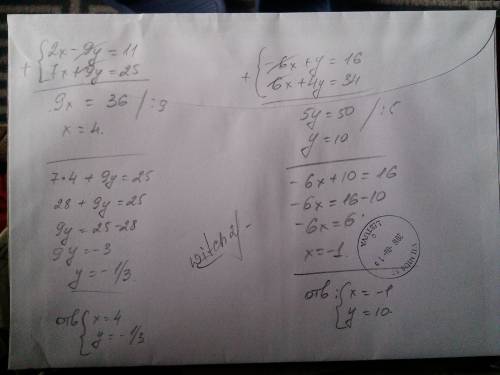 2x - 9y = 11
+ 7x + 9y = 25
9x = 36 / :9
x = 4.
7•4 + 9y = 25
28 + 9y = 25
9y = 25-28
9y = -3
y = -1/3.
отв { x = 4
y = -1/3
witch2/-
-6x + y = 16
+ 6x + 4y = 34
5y = 50 / :5
y = 10
-6x + 10 = 16
-6x = 16-10
-6x = 6
x = -1.
отв: { x = -1
y = 10.